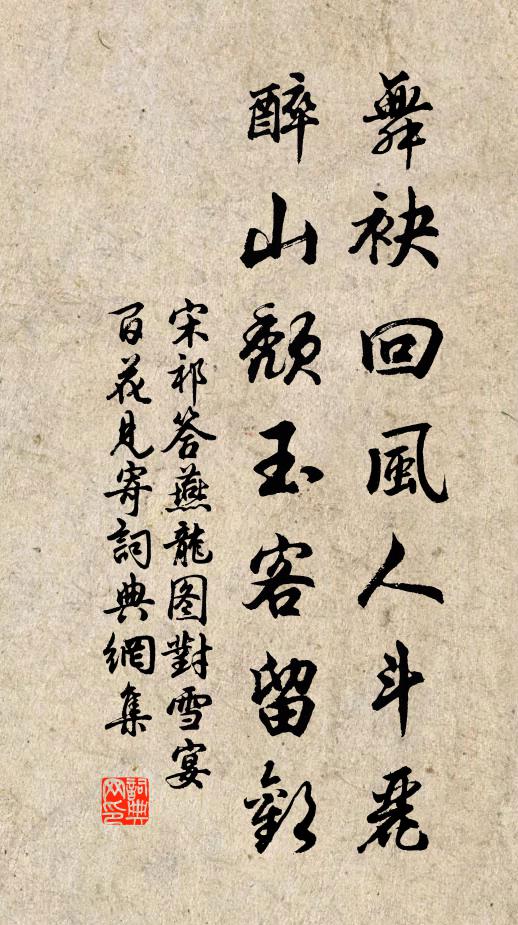 舞袂回風人斗麗
醉山頹玉客留歡
宋祁答燕龍图對雪宴
百花見寄詞典網集
詞典网印